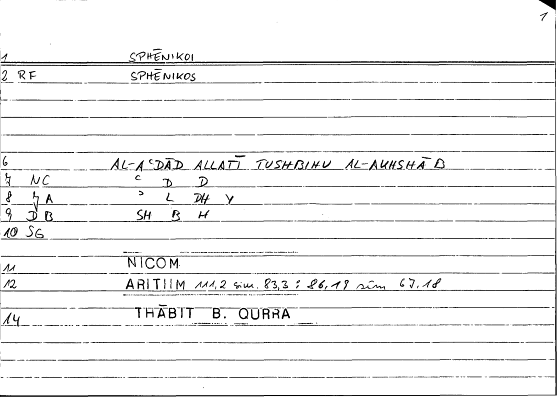 1
1 SPHĒNIKOI
2 RF SPHĒNIKOS
6 AL-AʿDĀD ALLATĪ TUSHBIHU AL-AKHSHĀB
7 NC ʿ D D
8 7A ʾ L DH Y
9 DB SH B H
10 SG
11 NICOM
12 ARITIIM 111,2 sim. 83,3 : 86,19 sim 67,18
14 THĀBIT B. QURRA